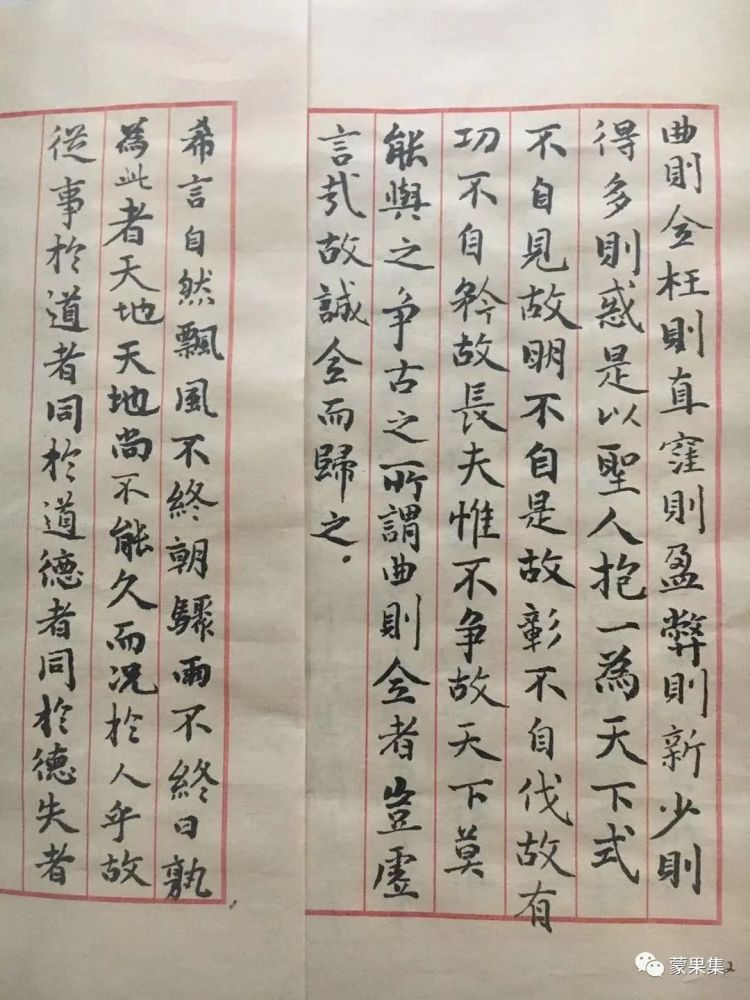 曲則全枉則直窪則盈弊則新少則
得多則惑是以聖人抱一為天下式
不自見故明不自是故彰不自伐故有
功不自矜故長夫惟不爭故天下莫
能與之爭古之所謂曲則全者豈虛
言哉故誠全而歸之。
希言自然飄風不終朝驟雨不終日孰
為此者天地天地尚不能久而況於人乎故
從事於道者同於道德者同於德失者
蒙果集
2